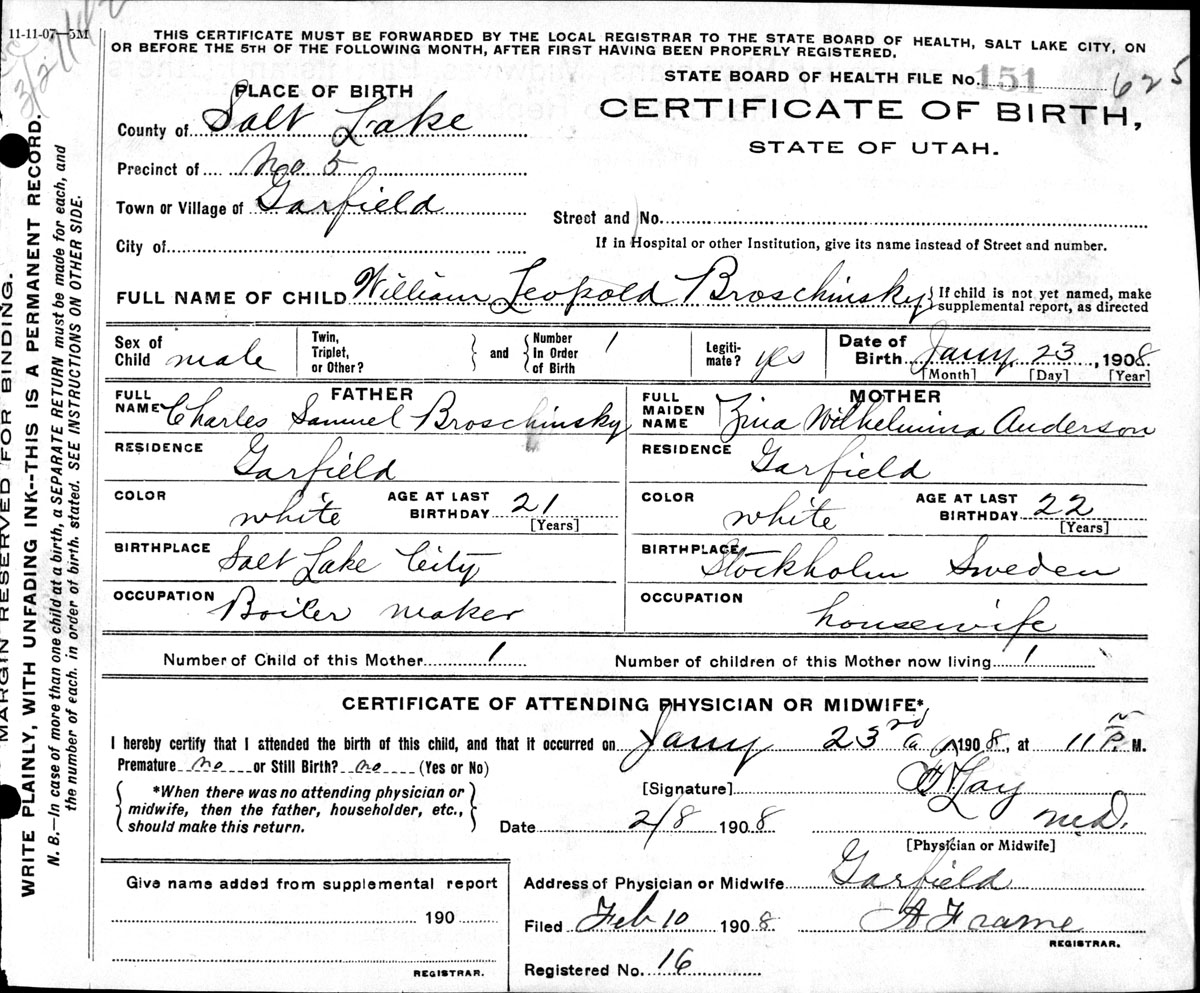 11-11-07—5M
THIS CERTIFICATE MUST BE FORWARDED BY THE LOCAL REGISTRAR TO THE STATE BOARD OF HEALTH, SALT LAKE CITY, ON
OR BEFORE THE 5TH OF THE FOLLOWING MONTH, AFTER FIRST HAVING BEEN PROPERLY REGISTERED.
STATE BOARD OF HEALTH FILE No. 151 625
CERTIFICATE OF BIRTH,
STATE OF UTAH.
PLACE OF BIRTH
County of Salt Lake
Precinct of No 5
Town or Village of Garfield
Street and No.
City of
If in Hospital or other Institution, give its name instead of Street and number.
FULL NAME OF CHILD William Leopold Broschinsky } If child is not yet named, make supplemental report, as directed
Sex of Child male
Twin, Triplet, or Other? } and { Number In Order of Birth 1
Legiti-mate? yes
Date of Birth Jany 23, 1908
[Month] [Day] [Year]
FATHER
FULL NAME Charles Samuel Broschinsky
RESIDENCE Garfield
COLOR white AGE AT LAST BIRTHDAY 21 [Years]
BIRTHPLACE Salt Lake City
OCCUPATION Boiler maker
MOTHER
FULL MAIDEN NAME Zina Wilhelmina Anderson
RESIDENCE Garfield
COLOR white AGE AT LAST BIRTHDAY 22 [Years]
BIRTHPLACE Stockholm Sweden
OCCUPATION housewife
Number of Child of this Mother 1 Number of children of this Mother now living 1
CERTIFICATE OF ATTENDING PHYSICIAN OR MIDWIFE*
I hereby certify that I attended the birth of this child, and that it occurred on Jany 23rd 1908, at 11 P. M.
Premature no or Still Birth? no (Yes or No)
*When there was no attending physician or
midwife, then the father, householder, etc.,
should make this return.
[Signature]
Date 2/8 1908 M.D.
[Physician or Midwife]
Give name added from supplemental report
190
REGISTRAR.
Address of Physician or Midwife Garfield
Filed Feb 10 1908 A Frame
REGISTRAR.
Registered No. 16
MARGIN RESERVED FOR BINDING.
WRITE PLAINLY, WITH UNFADING INK--THIS IS A PERMANENT RECORD.
N. B.—In case of more than one child at a birth, a SEPARATE RETURN must be made for each, and
the number of each, in order of birth, stated. SEE INSTRUCTIONS ON OTHER SIDE.